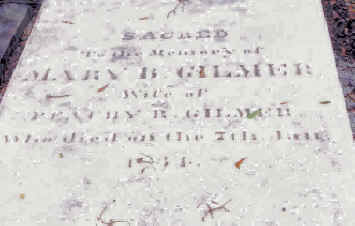 SACRED
To the Memory of
MARY B. GILMER
Wife of
PEACHY R. GILMER
Who died on the 7th